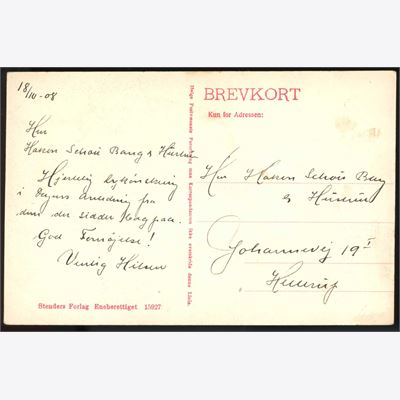 18/10-08
Hrn
Hakon Schou Bang & Hustru
Hjertelig Lykønskning
i Dagens Anledning fra
dem der sidder bag paa.
God Fornøjelse!
Venlig Hilsen
Stenders Forlag Eneberettiget 15927
Ifølge Postvæsenets Forordning maa Korrespondancen ikke overskride denne Linie.
BREVKORT
Kun for Adressen:
Hrn Hakon Schou Bang
& Hustru
Johannevej 19 I
Hellerup